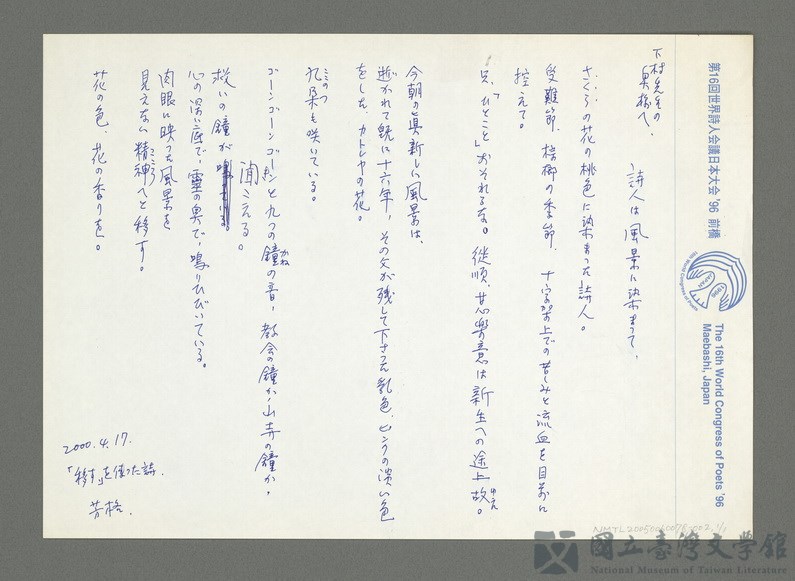 第16回世界詩人会議日本大会 '96 前橋
The 16th World Congress of Poets '96
Maebashi, Japan
16th World Congress of Poets
JAPAN
1996
下村先生の
前橋へ、
詩人は風景に染まって、
さくらの花の桃色に染まった詩人。
受難節、棕櫚の季節、十字架上での苦しみと流血を目前に
控えて。
只、「ひとこと」おそれるな。従順、甘心楽意は新生への途上故。
ゆえ
今朝の真新しい風景は、
逝かれて既に十六年、その父が残して下さった乳色、ピンクの淡い色
をした、カトレヤの花。
九朵も咲いている。
ここのつ
ゴーンゴーンゴーンと九つの鐘の音、教会の鐘か、山寺の鐘か、
かね
救いの鐘が
聞こえる。
心の深い底で、霊の奥で、鳴りひびいている。
肉眼に映った風景を
見えない精神へと移す。
こころ
花の色、花の香りを。
2000.4.17.
「移す」を使った詩.
芳格.
NMTL20050060078-002, 1/1
國立臺灣文學館
National Museum of Taiwan Literature